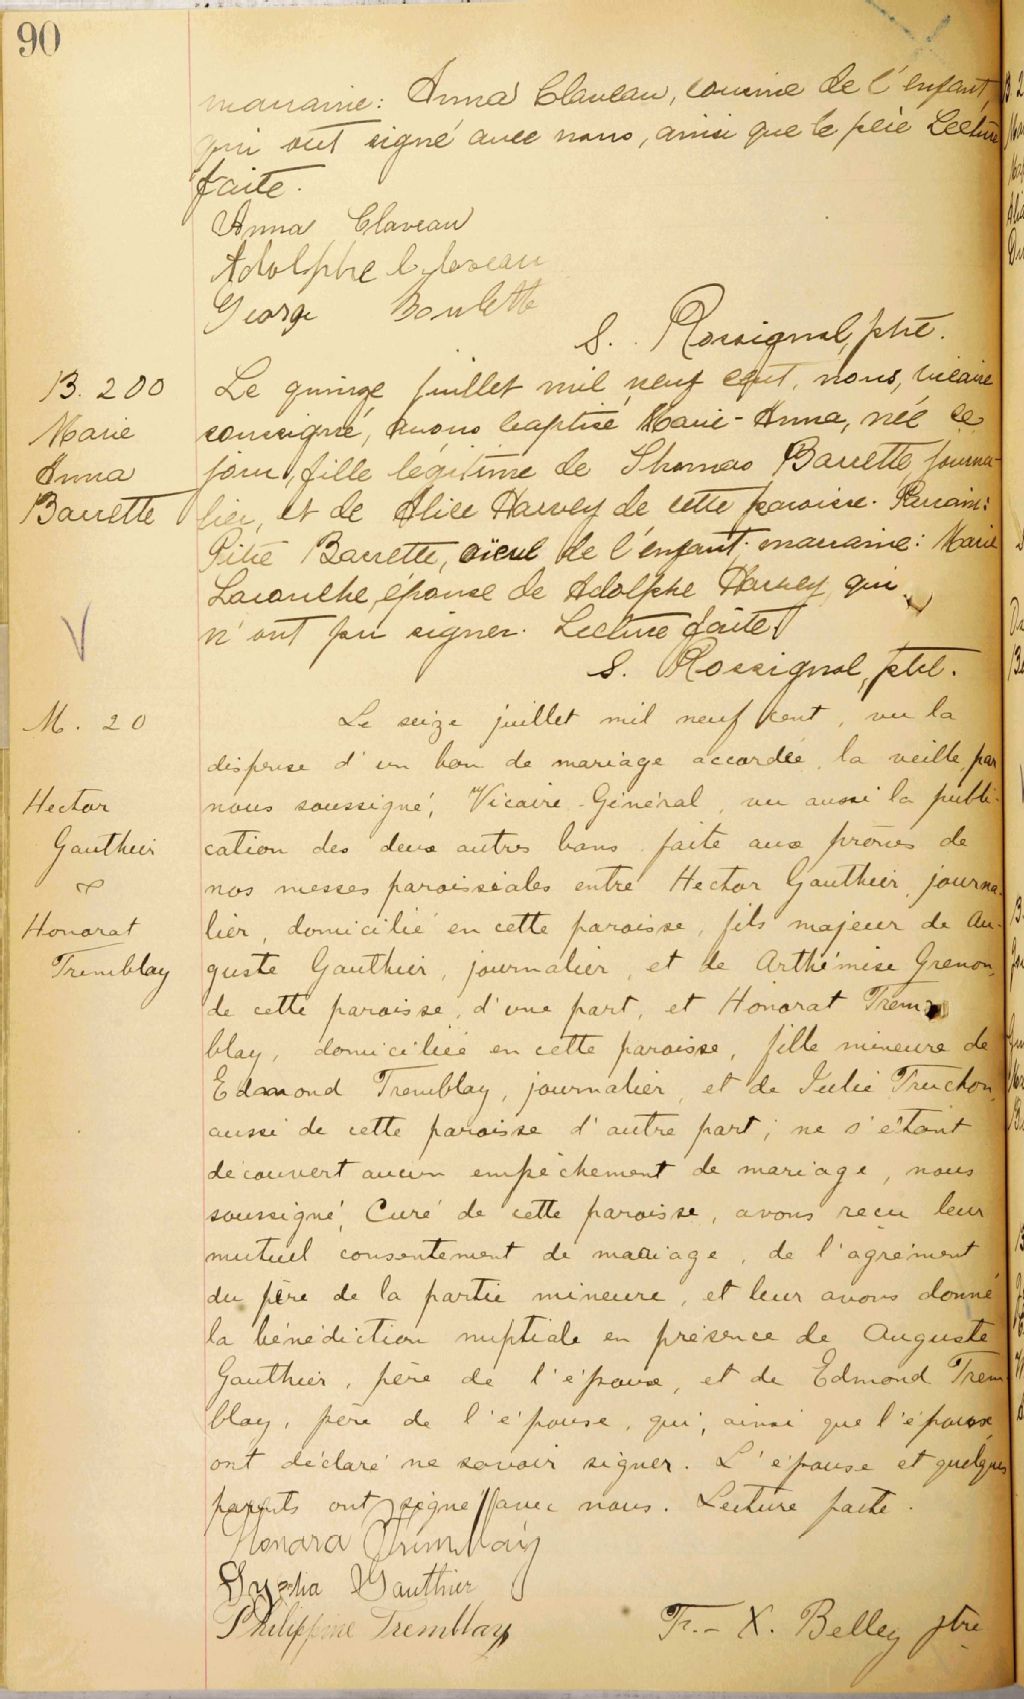 90
marraine: Anna Claveau, cousine de l'enfant,
qui ont signé avec nous, ainsi que le père Lecture
faite.
Anna Claveau
Adolphe Claveau
George Boulette
S. Rossignol, ptre.
B. 200
Marie
Anna
Barrette
Le quinze juillet mil neuf cent, nous, vicaire
soussigné, avons baptisé Marie-Anna, née ce
jour, fille légitime de Thomas Barrette journa-
lier, et de Alice Harvey de cette paroisse. Parrain:
Pitre Barrette, aïeul de l'enfant; marraine: Marie
Larouche, épouse de Adolphe Harvey, qui
n'ont pu signer. Lecture faite.
S. Rossignol, ptre.
M. 20
Hector
Gauthier
&
Honorat
Tremblay
Le seize juillet mil neuf cent, vu la
dispense d'un ban de mariage accordée, la veille, par
nous soussigné, Vicaire-Général, vu aussi la publi-
cation des deux autres bans faite aux prônes de
nos messes paroissiales entre Hector Gauthier, journa-
lier, domicilié en cette paroisse, fils majeur de Au-
guste Gauthier, journalier, et de Arthémise Grenon,
de cette paroisse, d'une part, et Honorat Trem-
blay, domiciliée en cette paroisse, fille mineure de
Edmond Tremblay, journalier, et de Julie Truchon,
aussi de cette paroisse d'autre part; ne s'étant
découvert aucun empêchement de mariage, nous
soussigné, Curé de cette paroisse, avons reçu leur
mutuel consentement de mariage, de l'agrément
du père de la partie mineure, et leur avons donné
la bénédiction nuptiale en présence de Auguste
Gauthier, père de l'époux, et de Edmond Trem-
blay, père de l'épouse, qui, ainsi que l'époux,
ont déclaré ne savoir signer. L'épouse et quelques
parents ont signé avec nous. Lecture faite.
Honara Tremblay
Gauthier
Philippine Tremblay
Fr.-X. Belley ptre